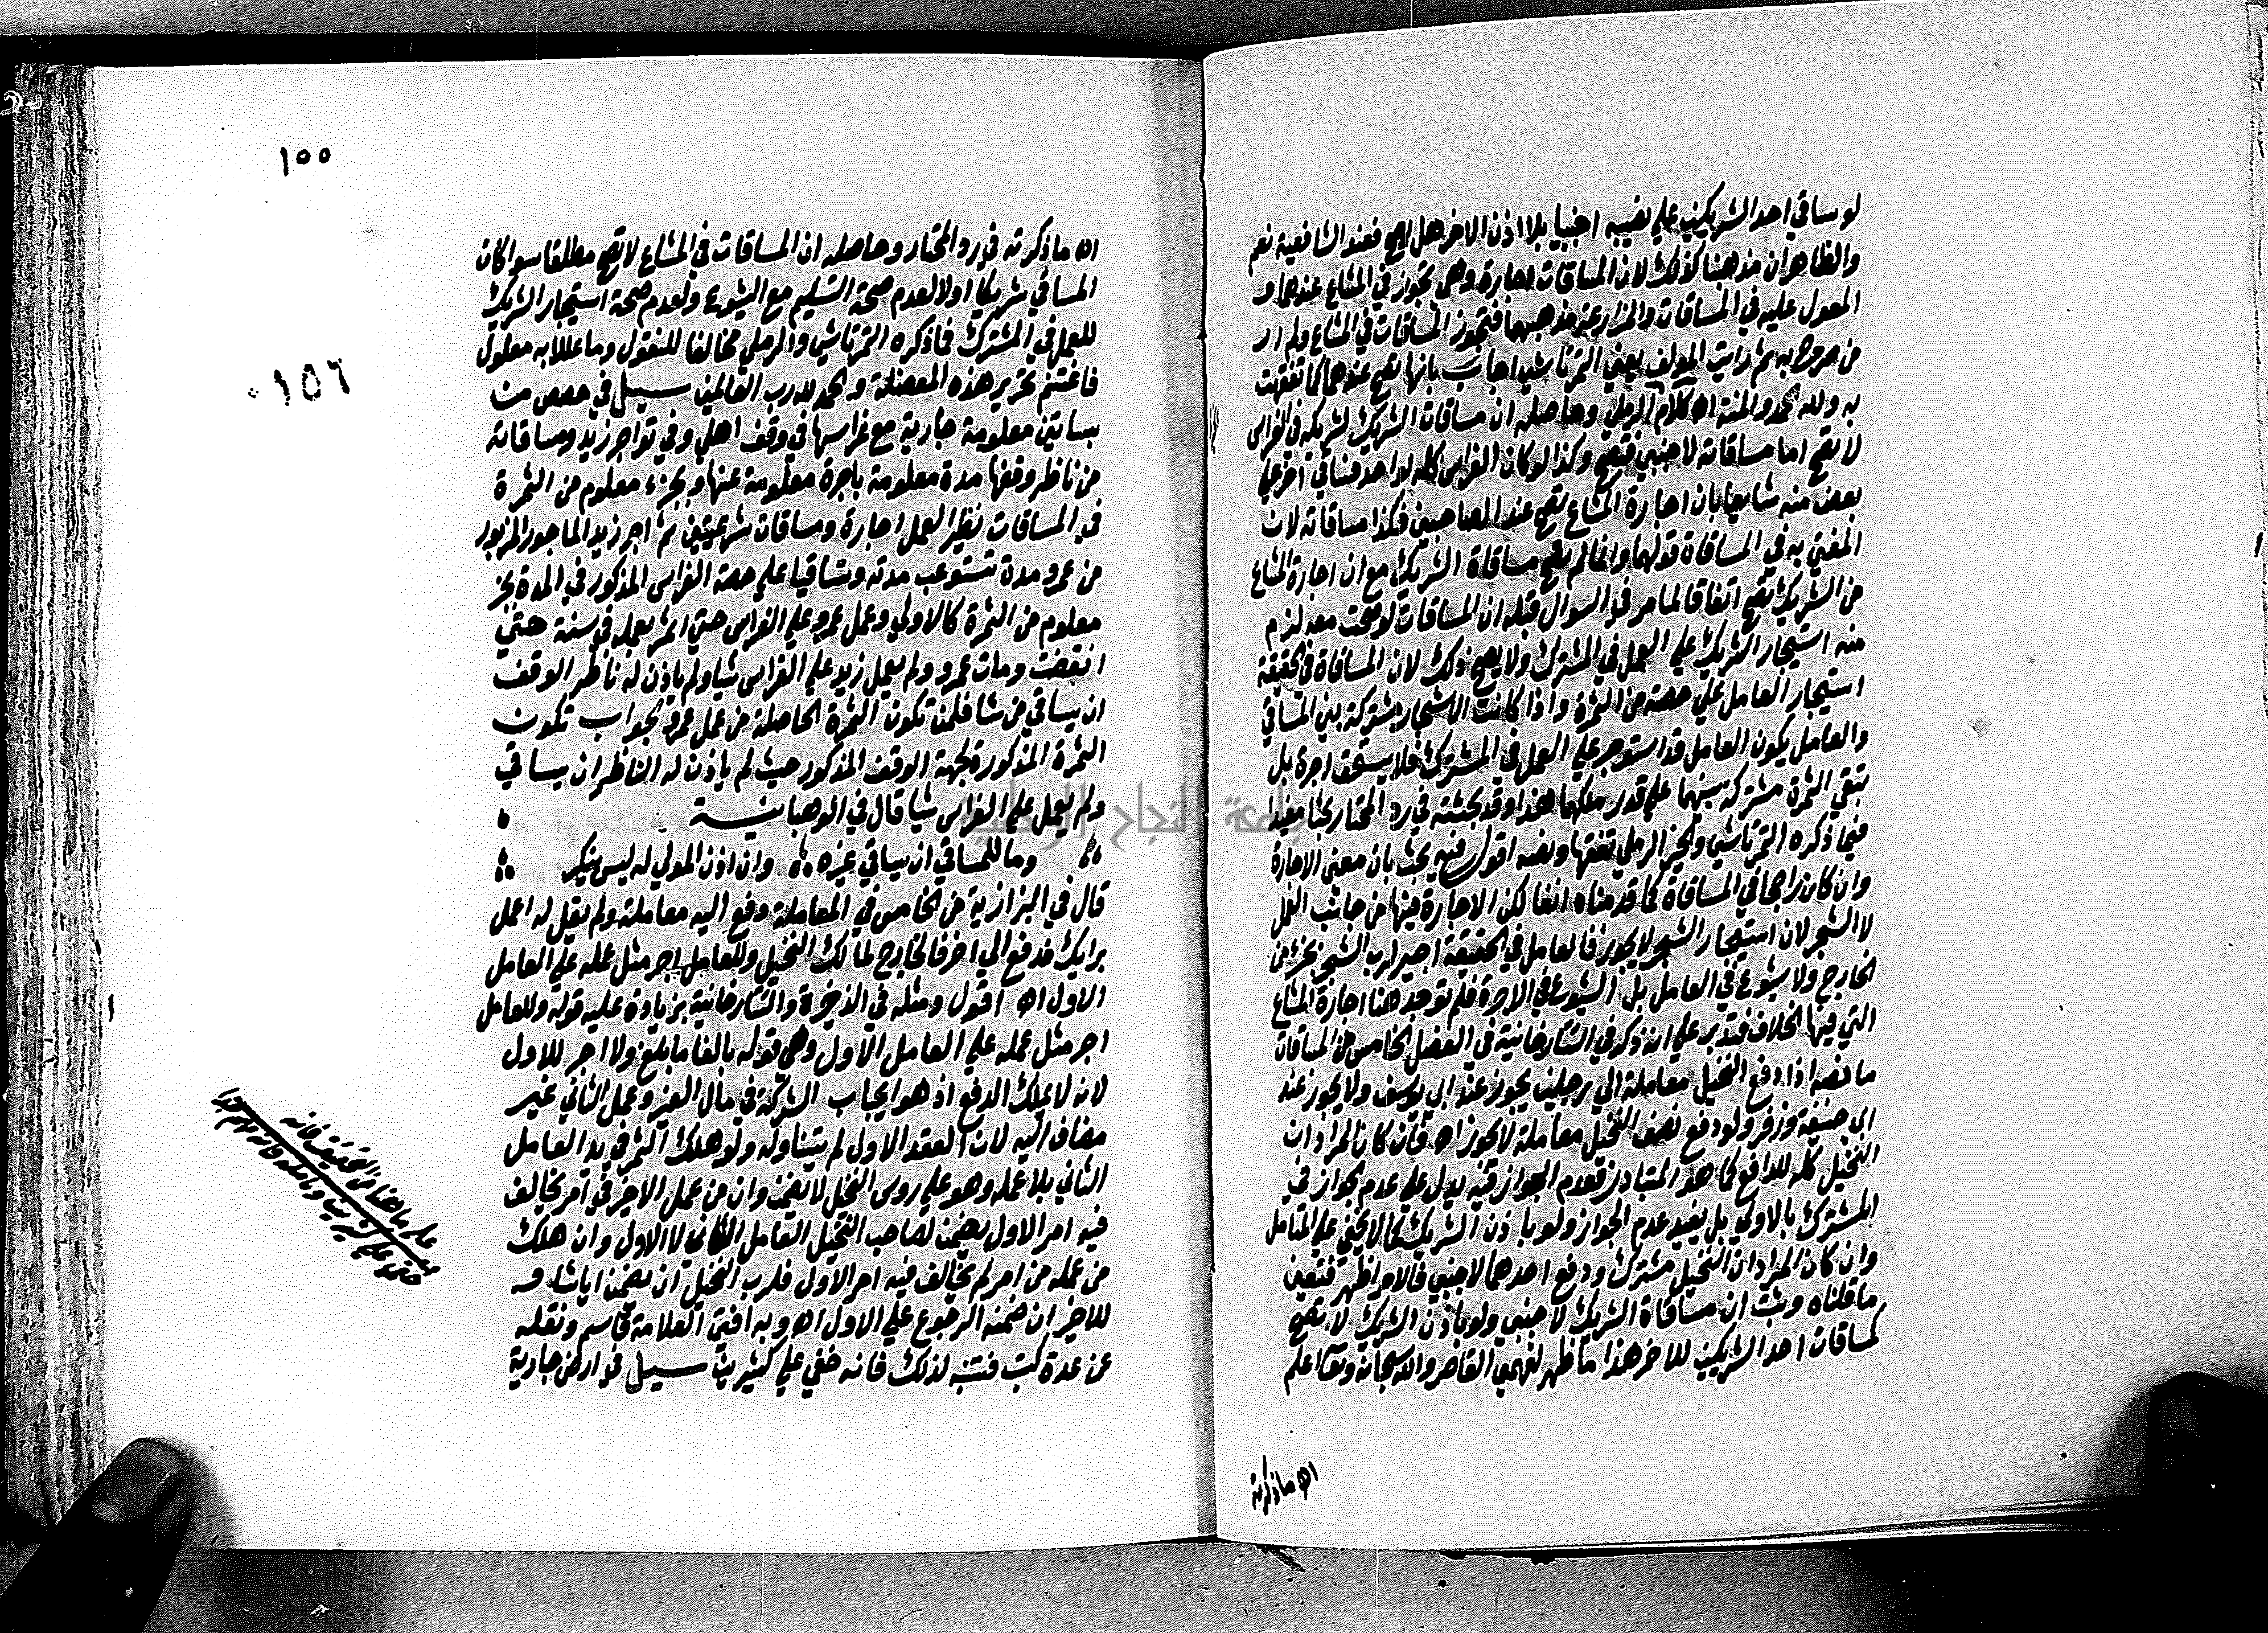 لو ساقي احد الشريكين علي نصيبه اجنبيا بلا اذن الاخر هل يصح فعند الشافعية نعم
والظاهر ان مذهبنا كذلك لان المساقات اجارة وهي تجوز في المشاع عندهما و
المعول عليه في المساقات والمزارعة مذهبهما فتجوز المساقات في المشاع ولم ار
من صرح به ثم رايت المولف يعني التمرتاشي اجاب بانها تصح عندهما كما تفقهت
به ولله الحمد والمنة اه كلام الرملي وحاصله ان مساقات الشريك لشريكه في الغراس
لا تصح اما مساقاته لاجنبي فتصح وكذا لو كان الغراس كله لواحد فساقي اخر علي
بعض منه شايعا بان اجارة المشاع تصح عند الصاحبين فكذا مساقاته لان
المفتي به في المساقاة قولهما وانما لم تصح مساقاة الشريك مع ان اجارة المشاع
من الشريك تصح اتفاقا لما مر في السوال قبله ان المساقات لو صحت معه لزم
منه استيجار الشريك علي العمل في المشترك ولا يصح ذلك لان المساقاة في الحقيقة
استيجار العامل علي حصة من الثمرة واذا كانت الاشجار مشتركة بين المساقي
والعامل يكون العامل قد استوجر علي العمل في المشترك فلا يستحق اجرة بل
تبقي الثمرة مشتركة بينهما علي قدر ملكهما هذا وقد بحثت في رد المحتار بحثا مفيدا
فيما ذكره التمرتاشي والخير الرملي تفقها ونصه اقول فيه بحث بان معني الاجارة
وان كان راجحا في المساقاة كما قدمناه انفا لكن الاجارة فيها من جانب العمل
لا الشجر لان استيجار الشجر لا يجوز فالعامل في الحقيقة اجير لرب الشجر بجزء من
الخارج ولا شيوع في العامل بل الشيوع في الاجرة فلم توجد هنا اجارة المشاع
التي فيها الخلاف فتدبر علي انه ذكر في التتارخانية في الفصل الخامس من المساقاة
ما نصه اذا دفع النخيل معاملة الي رجلين يجوز عند ابي يوسف ولا يجوز عند
ابي حنيفة وزفر ولو دفع نصف النخيل معاملة لا يجوز اه فان كان المراد ان
النخيل كله للدافع كما هو المتبادر فعدم الجواز فيه يدل علي عدم الجواز في
المشترك بالاولي بل يفيد عدم الجواز ولو باذن الشريك كما لا يخفي علي المتامل
وان كان المراد ان النخيل مشترك ودفع احدهما لاجنبي فالامر اظهر فتعين
ما قلناه وثبت ان مساقاة الشريك لاجنبي ولو باذن الشريك لا تصح
كمساقات احد الشريكين للاخر هذا ما ظهر لفهمي القاصر والله سبحانه وتعالى اعلم
اه ما ذكرته
١٥٥
١٥٦
اه ما ذكرته في رد المحتار وحاصله ان المساقات في المشاع لا تصح مطلقا سوا كان
المساقي شريكا اولا لعدم صحة التسليم مع الشيوع ولعدم صحة استيجار الشريك
للعمل في المشترك فما ذكره التمرتاشي والرملي مخالفا للمنقول وما عللا به معلول
فاغتنم تحرير هذه المعضلة والحمد لله رب العالمين سيل في حصص من
بساتين معلومة جارية مع غراسها في وقف اهلي وفي تواجر زيد ومساقاته
من ناظر وقفها مدة معلومة باجرة معلومة عنها وبجزء معلوم من الثمرة
في المساقات نظير العمل اجارة ومساقات شرعيتين ثم اجر زيد الماجور المزبور
من عمرو مدة تستوعب مدته وتساقيا علي حصة الغراس المذكور في المدة بجز
معلوم من الثمرة كالاولي وعمل عمرو علي الغراس حتي اثمر بعمله في سنة حتي
انقضت ومات عمرو ولم يعمل زيد علي الغراس شيا ولم ياذن له ناظر الوقف
ان يساقي من شا فلمن تكون الثمرة الحاصلة من عمل عمرو الجواب تكون
الثمرة المذكورة لجهة الوقف المذكور حيث لم ياذن له الناظر ان يساقي
ولم يعمل علي الغراس شيا قال في الوهبانية
وما للمساقي ان يساقي غيره ، وان اذن المولي له ليس ينكر
قال في البزازية من الخامس في المعاملة دفع اليه معاملة ولم يقل له اعمل
برايك فدفع الي اخر فالخارج لمالك النخيل وللعامل اجر مثل عمله علي العامل
الاول اه اقول ومثله في الذخيرة والتتارخانية بزيادة عليه قوله وللعامل
اجر مثل عمله علي العامل الاول وهي قوله بالغا ما بلغ ولا اجر للاول
لانه لا يملك الدفع اذ هو ايجاب الشركة في مال الغير وعمل الثاني غير
مضاف اليه لان العقد الاول لم يتناوله ولو هلك الثمر في يد العامل
الثاني بلا عمله وهو علي روس النخل لا يضمن وان من عمل الاخير في امر يخالف
فيه امر الاول يضمن لصاحب النخيل العامل الثاني لا الاول وان هلك
من عمله من امر لم يخالف فيه امر الاول فلرب النخيل ان يضمن ايا شا و
للاخير ان ضمنه الرجوع علي الاول اه وبه افتي العلامة قاسم ونقله
عن عدة كتب فتنبه لذلك فانه خفي علي كثيرين سيل في ارض جارية
علم ما هنا من التحقيق فانه